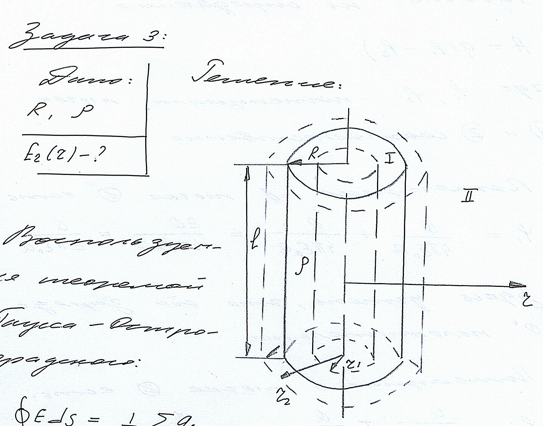 Задача 3:
Дано:
Решение:
R, ρ
E₂(r) - ?
R
I
II
l
ρ
r
r₁
r₂
Воспользуем-
ся теоремой
Гаусса-Остро-
градского:
∮EdS = 1 Σq